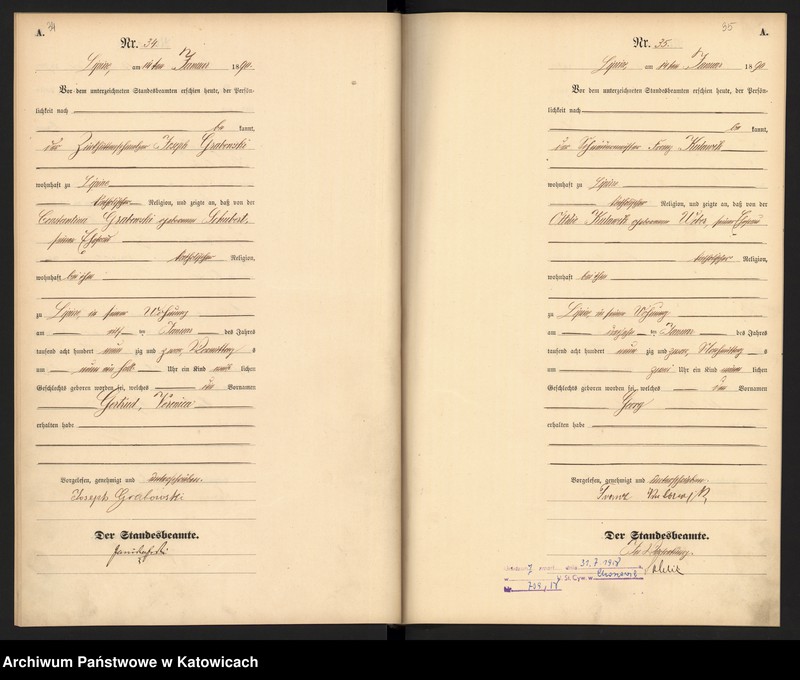 34
A.
Nr. 34.
Lipine, am 14ten Januar 1890.
Vor dem unterzeichneten Standesbeamten erschien heute, der Persön-
lichkeit nach
be kannt,
der Zinkhüttenschmelzer Joseph Grabowski
wohnhaft zu Lipine
katholischer Religion, und zeigte an, daß von der
Constantina Grabowski geborenen Schubert,
seiner Ehefrau
katholischer Religion,
wohnhaft bei ihm
zu Lipine in seiner Wohnung
am elf ten Januar des Jahres
tausend acht hundert neun zig und zwar Vormittags
um neun ein halb Uhr ein Kind weib lichen
Geschlechts geboren worden sei, welches die Vornamen
Gertrud, Veronica
erhalten habe
Vorgelesen, genehmigt und unterschrieben.
Joseph Grabowski
Der Standesbeamte.
35
A.
Nr. 35.
Lipine, am 14ten Januar 1890
Vor dem unterzeichneten Standesbeamten erschien heute, der Persön-
lichkeit nach
be kannt,
der Franz
wohnhaft zu Lipine
katholischer Religion, und zeigte an, daß von der
geborenen Weber, seiner Ehefrau
katholischer Religion,
wohnhaft bei ihm
zu Lipine in seiner Wohnung
am ten Januar des Jahres
tausend acht hundert neun zig und zwar Nachmittags
um zwei Uhr ein Kind männ lichen
Geschlechts geboren worden sei, welches den Vornamen
Georg
erhalten habe
Vorgelesen, genehmigt und unterschrieben
Franz
Der Standesbeamte.
Archiwum Państwowe w Katowicach